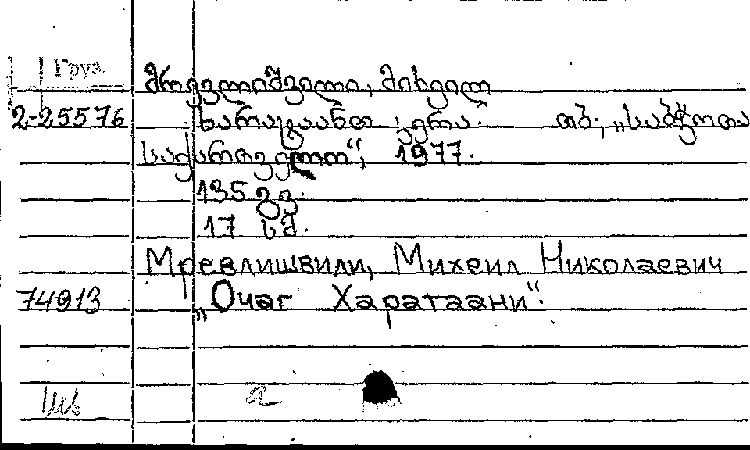 Груз.
მრევლიშვილი, მიხეილ
2-25576 ხარატაანთ კერა. თბ., „საბჭოთა
საქართველო“, 1977.
135 გვ.
17 სმ.
Мревлишвили, Михеил Николаевич
74913 „Очаг Харатаани“.